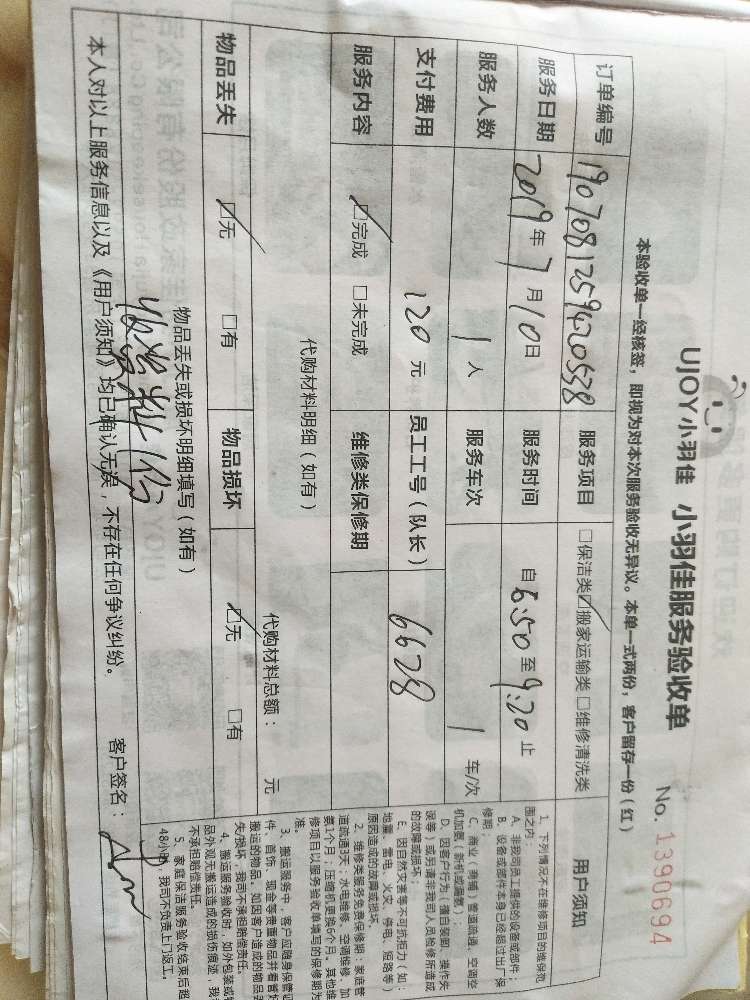 UJOY小羽佳 小羽佳服务验收单
No. 1390694
本验收单一经核签，即视为对本次服务验收无异议。本单一式两份，客户留存一份（红）
订单编号 1907081259420538 服务项目 □保洁类☑搬家运输类□维修清洗类
服务日期 2019年7月10日 服务时间 自6:50至9:20止
服务人数 1人 服务车次 1 车/次
支付费用 120元 员工工号（队长） 6628
服务内容 ☑完成 □未完成 维修类保修期
代购材料明细（如有）
代购材料总额： 元
物品丢失 ☑无 □有 物品损坏 ☑无 □有
物品丢失或损坏明细填写（如有）
本人对以上服务信息以及《用户须知》均已确认无误，不存在任何争议纠纷。 客户签名：
用户须知
1、下列情况不在维修项目的维保范
围之内：
A、非我司员工提供的设备或部件；
B、设备或部件本身已经超过出厂保
修期；
C、商业（商铺）管道疏通、空调空
机加氟（新机或漏氟）；
D、因客户行为（擅自装卸、操作失
误等）或另请非我司人员检修所造成
的故障或损坏；
E、因自然灾害等不可抗拒力（如：
地震、雷电、火灾、停电、短路等）
原因造成的故障或损坏.
2、维修类服务免费保修期：家庭管
道疏通3天；水电维修、空调维修、加
氟1个月；压缩机更换6个月，其他维
修项目以服务验收单填写的保修期为
准。
3、搬运服务中，客户应随身保管证
件、首饰、现金等贵重物品并看管好
搬运的物品。如因客户造成的物品丢
失/损坏，我司不承担赔偿责任。
4、搬运服务验收时，如外包装或物
品外观无搬运造成的损伤痕迹，我司
不承担赔偿责任。
5、家庭保洁服务验收结束后超
48小时，我司不负责上门返工。